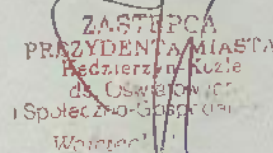 ZASTĘPCA
PREZYDENTA MIASTA
Kędzierzyn-Koźle
ds. Oświatowych
i Społeczno-Gospodar
Wojciech